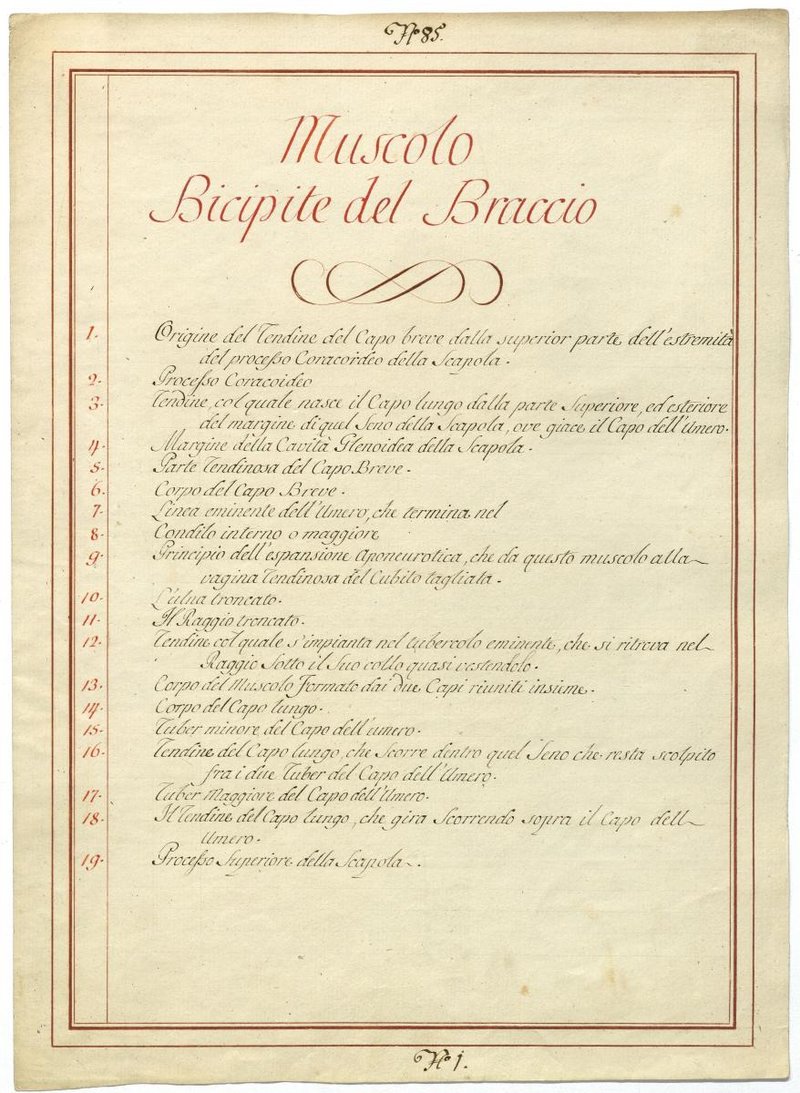 Nº 85.
Muscolo
Bicipite del Braccio
1. Origine del Tendine del Capo breve dalla superior parte dell'estremità
del processo Coracoideo della Scapola.
2. Processo Coracoideo
3. Tendine, col quale nasce il Capo lungo dalla parte Superiore, ed esteriore
del margine di quel Seno della Scapola, ove giace il Capo dell'Umero.
4. Margine della Cavità Glenoidea della Scapola.
5. Parte Tendinosa del Capo Breve.
6. Corpo del Capo Breve.
7. Linea eminente dell'Umero, che termina nel
8. Condilo interno o maggiore
9. Principio dell'espansione Aponeurotica, che da questo muscolo alla
vagina Tendinosa del Cubito tagliata.
10. L'ulna troncato.
11. Il Raggio troncato.
12. Tendine col quale s'impianta nel tubercolo eminente, che si ritrova nel
Raggio Sotto il Suo collo quasi vestendolo.
13. Corpo del Muscolo Formato dai due Capi riuniti insieme.
14. Corpo del Capo lungo.
15. Tuber minore del Capo dell'umero.
16. Tendine del Capo lungo, che Scorre dentro quel Seno che resta scolpito
fra i due Tuber del Capo dell'Umero.
17. Tuber Maggiore del Capo dell'Umero.
18. Il Tendine del Capo lungo, che gira Scorrendo sopra il Capo dell
Umero.
19. Processo Superiore della Scapola.
Nº 1.